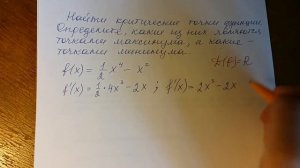 Найти критические точки функции.
Определите, какие из них являются
точками максимума, а какие –
точками минимума.
f(x) = 1/2 x⁴ − x² D(f)=R
f'(x) = 1/2 · 4x³ − 2x ; f'(x) = 2x³ − 2x